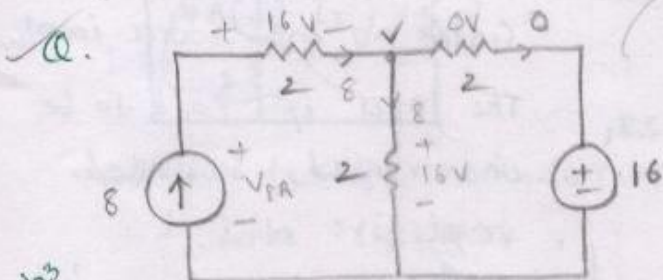 Q.
+ 16V − V 0V 0
2 8 2
8
8 + V − 2 + 16V − + − 16